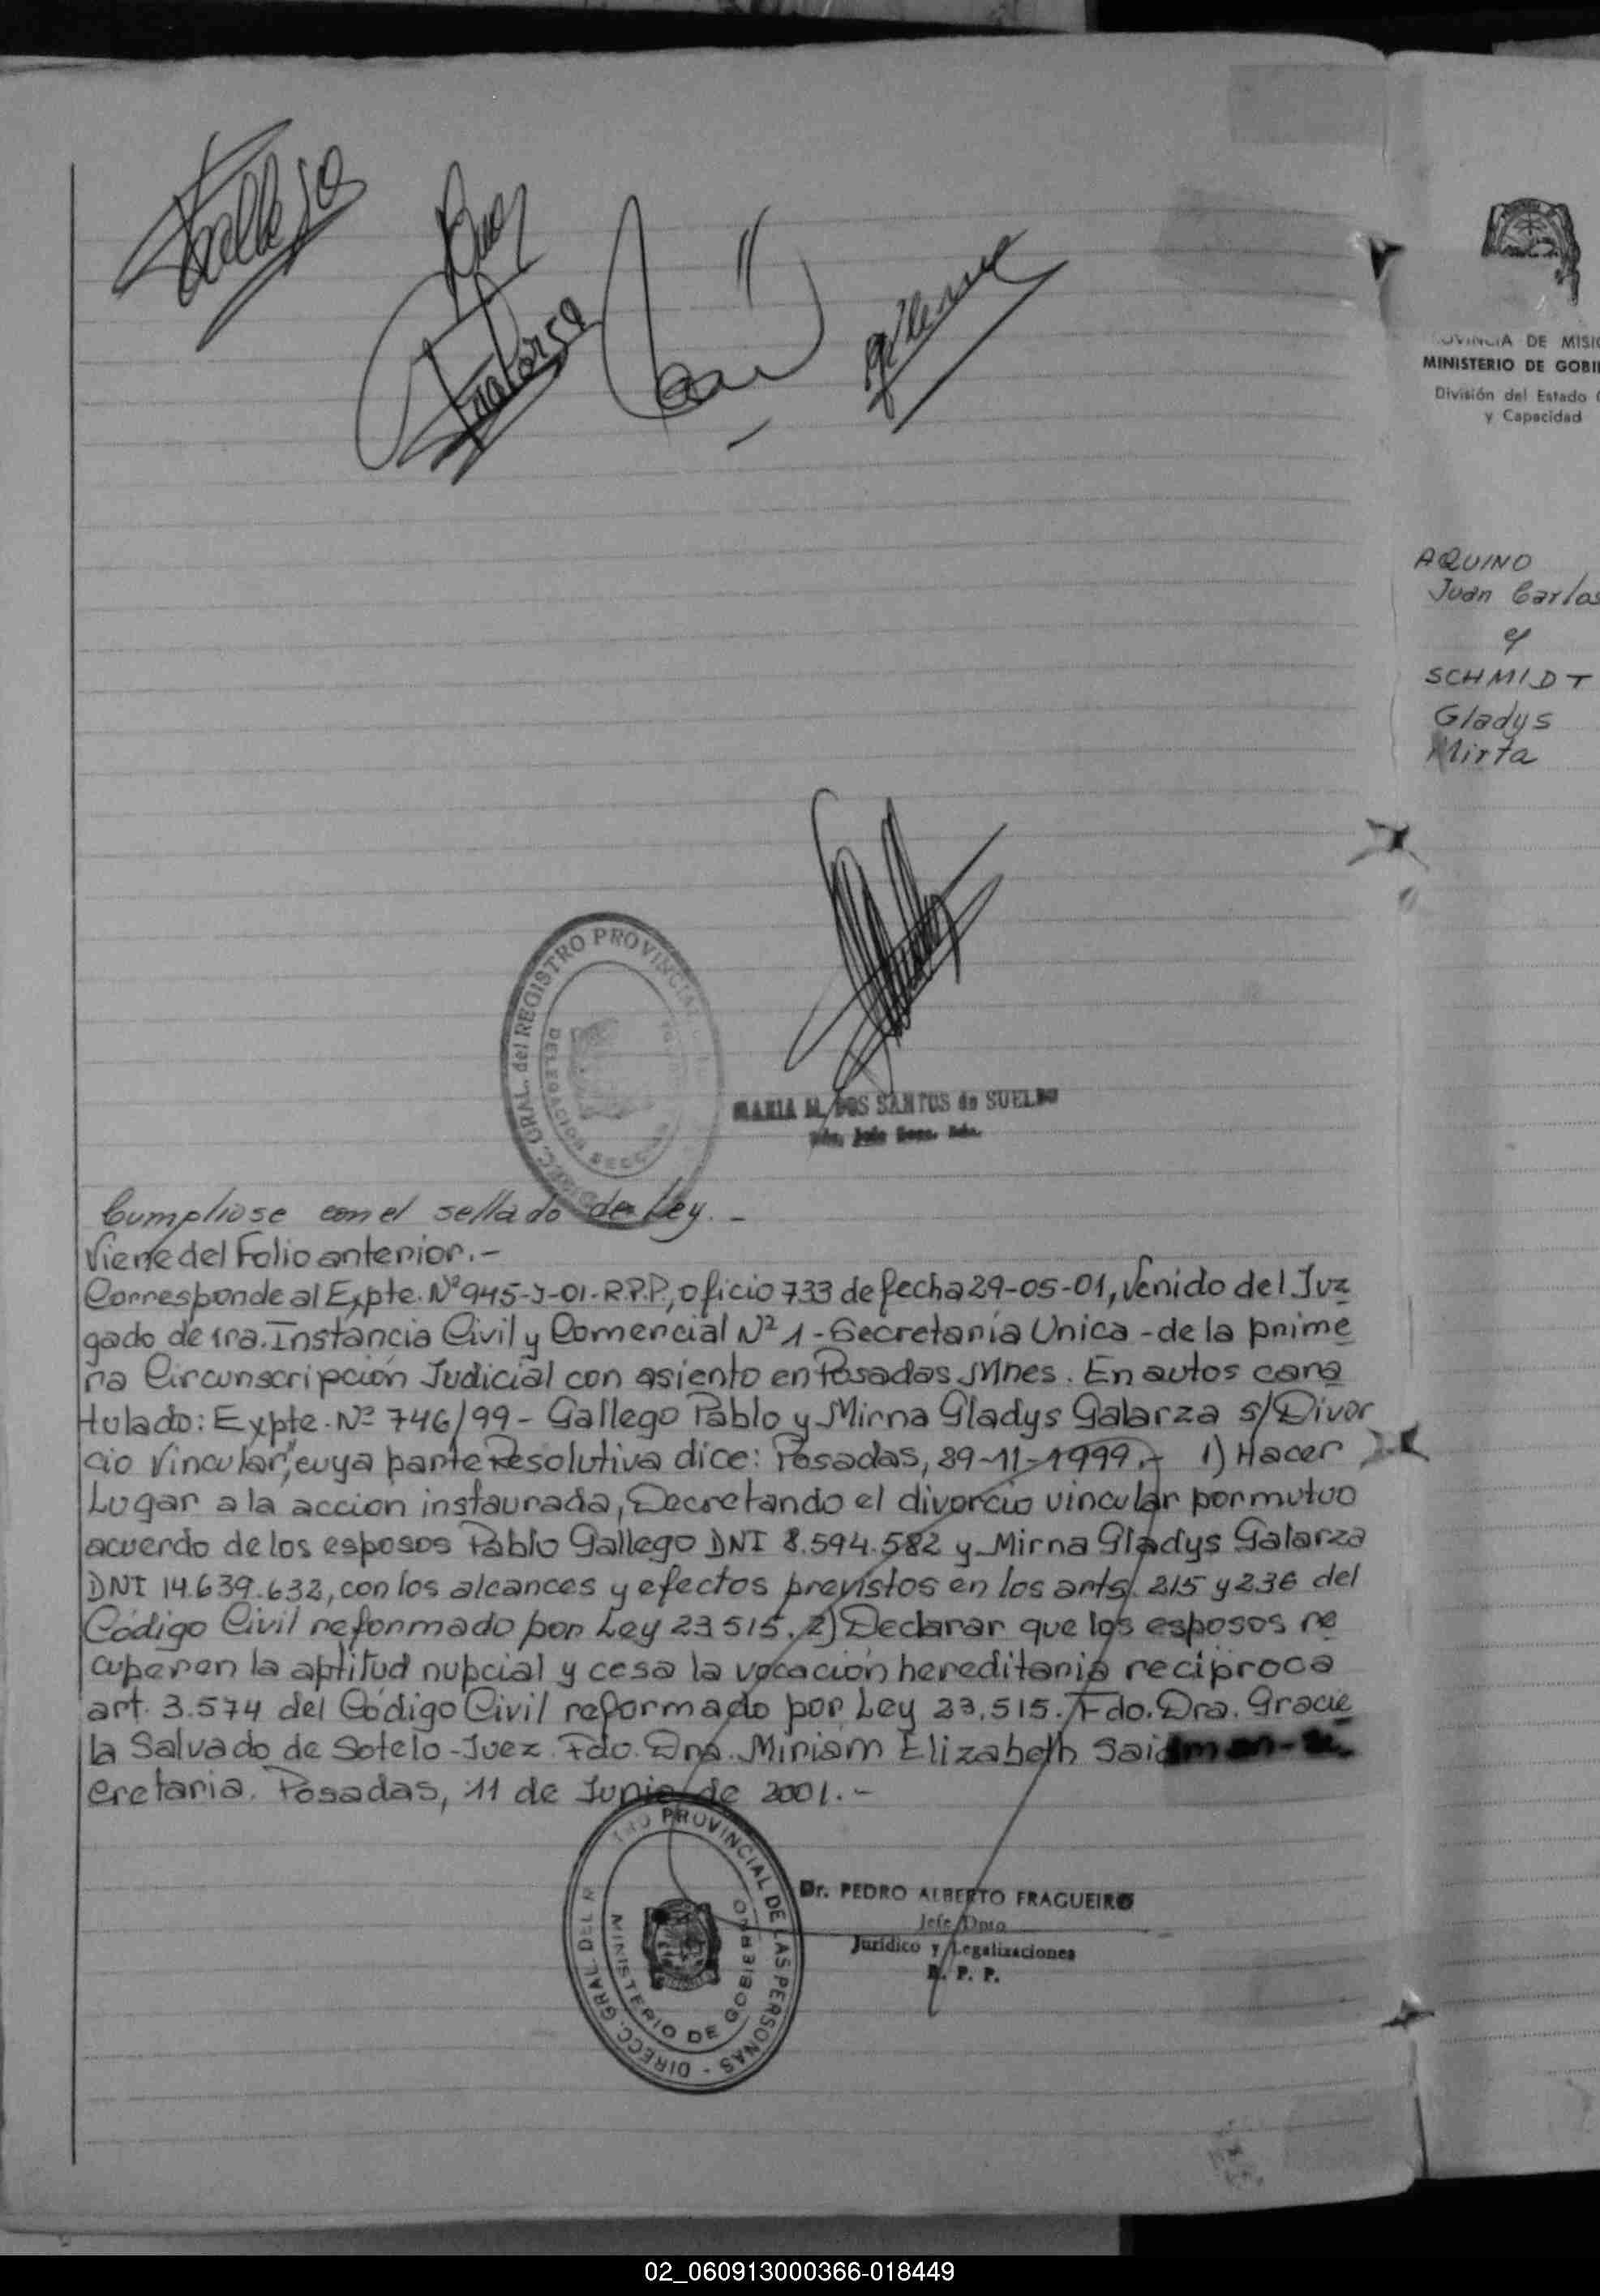 MARIA M. DOS SANTOS de SUELDO
DIRECC. GRAL. del REGISTRO PROVINCIAL
DELEGACION
Cumpliose con el sellado de Ley. -
Viene del Folio anterior.-
Corresponde al Expte. Nº 945-J-01-R.P.P., oficio 733 de fecha 29-05-01, venido del Juz
gado de 1ra. Instancia Civil y Comercial Nº 1 - Secretaría Unica - de la prime
ra Circunscripción Judicial con asiento en Posadas Mnes. En autos cara
tulado: Expte. Nº 746/99 - Gallego Pablo y Mirna Gladys Galarza s/Divor
cio Vincular", cuya parte Resolutiva dice: Posadas, 29-11-1999.- 1) Hacer
Lugar a la accion instaurada, Decretando el divorcio vincular por mutuo
acuerdo de los esposos Pablo Gallego DNI 8.594.582 y Mirna Gladys Galarza
DNI 14.639.632, con los alcances y efectos previstos en los arts. 215 y 236 del
Código Civil reformado por Ley 23.515. 2) Declarar que los esposos re
cuperen la aptitud nupcial y cesa la vocación hereditaria reciproca
art. 3.574 del Código Civil reformado por Ley 23.515. Fdo. Dra. Gracie
la Salvado de Sotelo - Juez. Fdo. Dra. Miriam Elizabeth Saidman - Se
cretaria. Posadas, 11 de Junio de 2001.-
PROVINCIAL DE LAS PERSONAS - DIRECC. GRAL. DEL
MINISTERIO DE GOBIERNO
Dr. PEDRO ALBERTO FRAGUEIRO
Jefe Dpto
Jurídico y Legalizaciones
R. P. P.
DE
MINISTERIO DE
División del Estado
y Capacidad
AQUINO
Juan Carlos
y
SCHMIDT
Gladys
Mirta
02_060913000366-018449